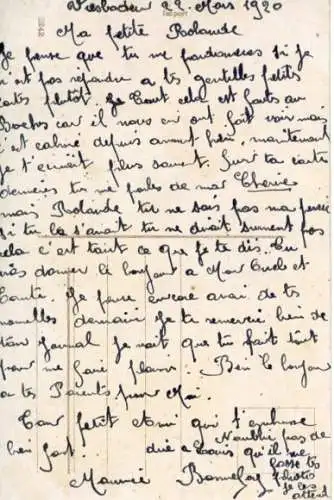 Wiesbaden 22 Mars 1920
Ma petite Rolande
Je pense que tu me pardonneras si je
n'ai pas répondu a tes gentilles petites
cartes plutot. Je tout cela est fautes au
Boches car il nous en ont fait voir mais
c'est calmé depuis avant hier, maintenant
je t'écrirait plus souvent. Sur ta carte
dernieres tu me parles de mon Cherie
mais Rolande tu ne sais pas ma
si tu la s'avait tu ne dirait surment pas
cela c'est tout ce que je te dis. Tu
donner le bonjour a Mon Oncle et
Tante. Je pense encore avoir de tes
nouvelles demain je te remercie bien de
ton journal je sait que tu fait tout
pour me faire plaisir. Bien le bonjour
a tes Parents pour Moi.
Ton petit Ami qui t'embrasse
bien fort N'oublie pas de
dire a Louis qu'il me
fasse tes
photos
Maurice je les
attend